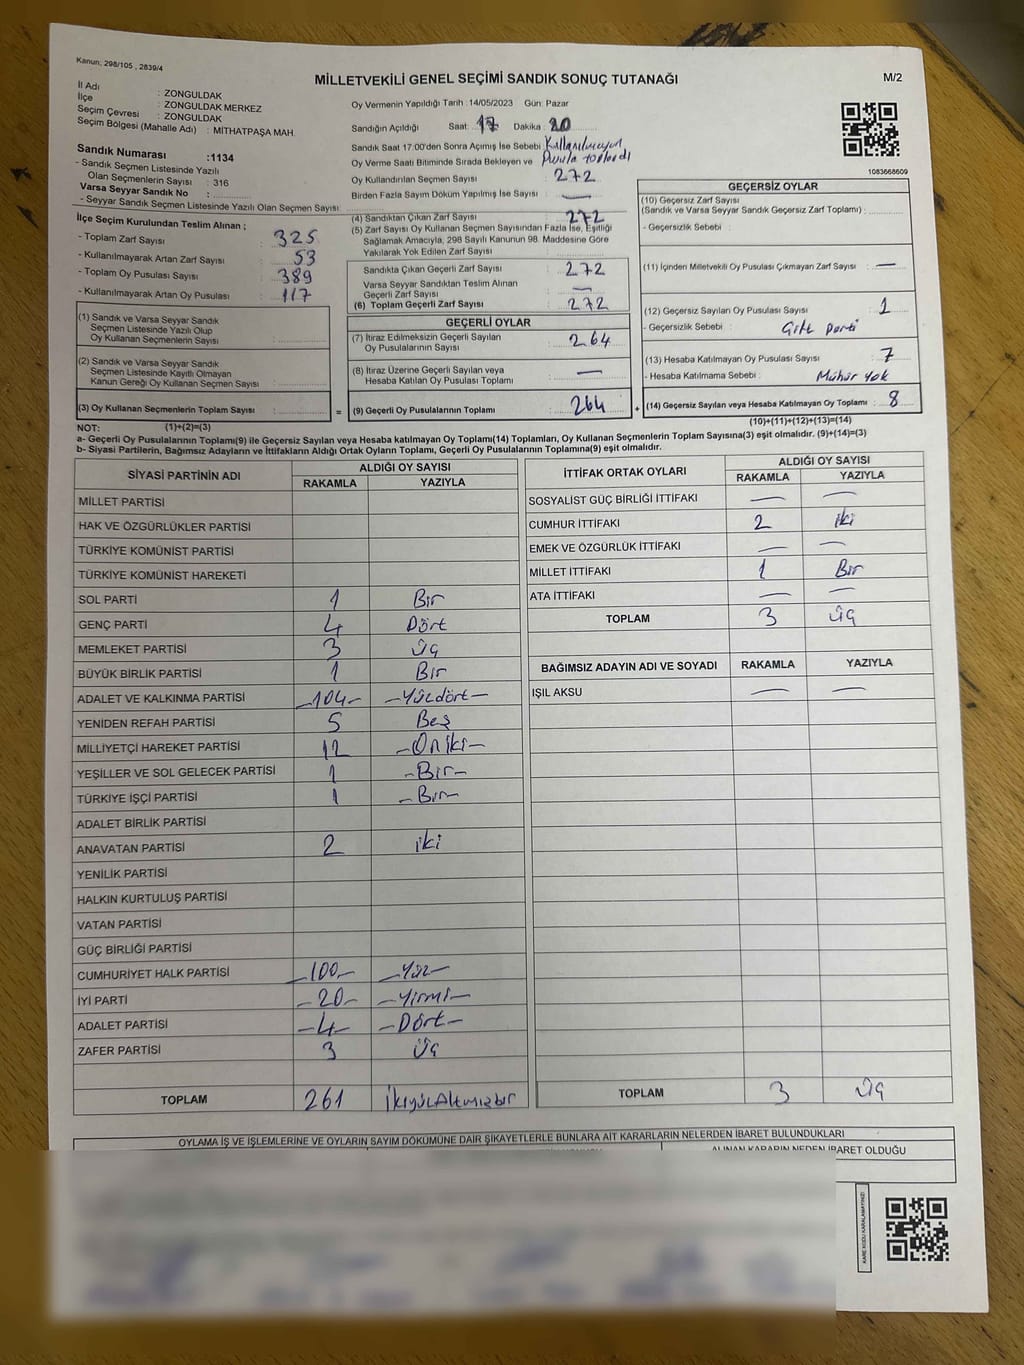 Kanun, 298/105 , 2839/4
MİLLETVEKİLİ GENEL SEÇİMİ SANDIK SONUÇ TUTANAĞI
M/2
İl Adı : ZONGULDAK
İlçe : ZONGULDAK MERKEZ
Seçim Çevresi : ZONGULDAK
Seçim Bölgesi (Mahalle Adı) : MİTHATPAŞA MAH.
Sandık Numarası :1134
- Sandık Seçmen Listesinde Yazılı
Olan Seçmenlerin Sayısı : 316
Varsa Seyyar Sandık No :
- Seyyar Sandık Seçmen Listesinde Yazılı Olan Seçmen Sayısı:
İlçe Seçim Kurulundan Teslim Alınan ;
- Toplam Zarf Sayısı : 325
- Kullanılmayarak Artan Zarf Sayısı : 53
- Toplam Oy Pusulası Sayısı : 389
- Kullanılmayarak Artan Oy Pusulası : 117
(1) Sandık ve Varsa Seyyar Sandık
Seçmen Listesinde Yazılı Olup
Oy Kullanan Seçmenlerin Sayısı :
(2) Sandık ve Varsa Seyyar Sandık
Seçmen Listesinde Kayıtlı Olmayan
Kanun Gereği Oy Kullanan Seçmen Sayısı :
(3) Oy Kullanan Seçmenlerin Toplam Sayısı :
Oy Vermenin Yapıldığı Tarih :14/05/2023 Gün: Pazar
Sandığın Açıldığı Saat: 17 Dakika : 20
Sandık Saat 17:00'den Sonra Açımış İse Sebebi : Kullanılmayan
Oy Verme Saati Bitiminde Sırada Bekleyen ve Pusula toplandı
Oy Kullandırılan Seçmen Sayısı : 272
Birden Fazla Sayım Döküm Yapılmış İse Sayısı : —
(4) Sandıktan Çıkan Zarf Sayısı : 272
(5) Zarf Sayısı Oy Kullanan Seçmen Sayısından Fazla İse, Eşitliği
Sağlamak Amacıyla, 298 Sayılı Kanunun 98. Maddesine Göre
Yakılarak Yok Edilen Zarf Sayısı :
Sandıkta Çıkan Geçerli Zarf Sayısı : 272
Varsa Seyyar Sandıktan Teslim Alınan
Geçerli Zarf Sayısı : —
(6) Toplam Geçerli Zarf Sayısı : 272
GEÇERLİ OYLAR
(7) İtiraz Edilmeksizin Geçerli Sayılan
Oy Pusulalarının Sayısı : 264
(8) İtiraz Üzerine Geçerli Sayılan veya
Hesaba Katılan Oy Pusulası Toplamı : —
= (9) Geçerli Oy Pusulalarının Toplamı : 264
1083668609
GEÇERSİZ OYLAR
(10) Geçersiz Zarf Sayısı
(Sandık ve Varsa Seyyar Sandık Geçersiz Zarf Toplamı) :
- Geçersizlik Sebebi :
(11) İçinden Milletvekili Oy Pusulası Çıkmayan Zarf Sayısı : —
(12) Geçersiz Sayılan Oy Pusulası Sayısı : 1
- Geçersizlik Sebebi : Çift Parti
(13) Hesaba Katılmayan Oy Pusulası Sayısı : 7
- Hesaba Katılmama Sebebi : Mühür Yok
+ (14) Geçersiz Sayılan veya Hesaba Katılmayan Oy Toplamı : 8
NOT: (1)+(2)=(3) (10)+(11)+(12)+(13)=(14)
a- Geçerli Oy Pusulalarının Toplamı(9) ile Geçersiz Sayılan veya Hesaba katılmayan Oy Toplamı(14) Toplamları, Oy Kullanan Seçmenlerin Toplam Sayısına(3) eşit olmalıdır. (9)+(14)=(3)
b- Siyasi Partilerin, Bağımsız Adayların ve İttifakların Aldığı Ortak Oyların Toplamı, Geçerli Oy Pusulalarının Toplamına(9) eşit olmalıdır.
SİYASİ PARTİNİN ADI ALDIĞI OY SAYISI
RAKAMLA YAZIYLA
MİLLET PARTİSİ
HAK VE ÖZGÜRLÜKLER PARTİSİ
TÜRKİYE KOMÜNİST PARTİSİ
TÜRKİYE KOMÜNİST HAREKETİ
SOL PARTİ 1 Bir
GENÇ PARTİ 4 Dört
MEMLEKET PARTİSİ 3 Üç
BÜYÜK BİRLİK PARTİSİ 1 Bir
ADALET VE KALKINMA PARTİSİ –104– –Yüzdört–
YENİDEN REFAH PARTİSİ 5 Beş
MİLLİYETÇİ HAREKET PARTİSİ 12 –Oniki–
YEŞİLLER VE SOL GELECEK PARTİSİ 1 –Bir–
TÜRKİYE İŞÇİ PARTİSİ 1 –Bir–
ADALET BİRLİK PARTİSİ
ANAVATAN PARTİSİ 2 iki
YENİLİK PARTİSİ
HALKIN KURTULUŞ PARTİSİ
VATAN PARTİSİ
GÜÇ BİRLİĞİ PARTİSİ
CUMHURİYET HALK PARTİSİ –100– –Yüz–
İYİ PARTİ –20– –Yirmi–
ADALET PARTİSİ –4– –Dört–
ZAFER PARTİSİ 3 Üç
TOPLAM 261 İkiyüzAltmışbir
İTTİFAK ORTAK OYLARI ALDIĞI OY SAYISI
RAKAMLA YAZIYLA
SOSYALİST GÜÇ BİRLİĞİ İTTİFAKI — —
CUMHUR İTTİFAKI 2 iki
EMEK VE ÖZGÜRLÜK İTTİFAKI — —
MİLLET İTTİFAKI 1 Bir
ATA İTTİFAKI — —
TOPLAM 3 Üç
BAĞIMSIZ ADAYIN ADI VE SOYADI RAKAMLA YAZIYLA
IŞIL AKSU — —
TOPLAM 3 Üç
OYLAMA İŞ VE İŞLEMLERİNE VE OYLARIN SAYIM DÖKÜMÜNE DAİR ŞİKAYETLERLE BUNLARA AİT KARARLARIN NELERDEN İBARET BULUNDUKLARI
ALINAN KARARIN NEDEN İBARET OLDUĞU
KARE KODU KARALAMAYINIZ!